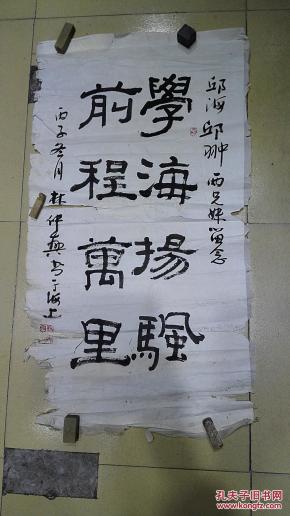 邱海邱翀两兄妹留念
學海揚颿
前程萬里
丙子冬月林仲興書于海上
孔夫子旧书网